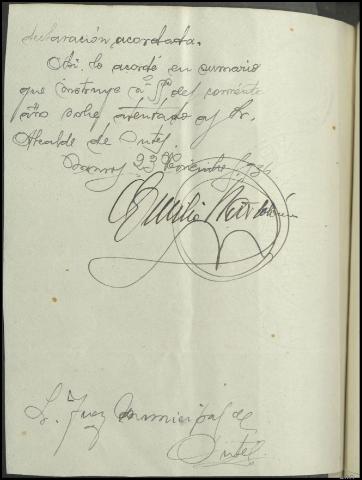 declaración acordada.
Así lo acordé en sumario
que instruyo del corriente
año sobre atentado al Sr.
Alcalde de Ontel.
23 Noviembre 1934
Emilio
Sr. Juez municipal de
Ontel